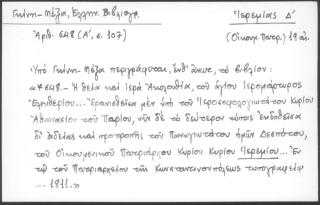 Γκίνη - Μέξα, Ἑλλην. Βιβλιογρ. Ἱερεμίας Δ΄
Ἀρθ. 648 (Α΄, σ. 107) (Οἰκουμ. Πατρ.) 19 αἰ.
Ὑπὸ Γκίνη-Μέξα περιγράφεται, ἔνθ' ἄνωτ., τὸ βιβλίον:
«*648.- Ἡ θεία καὶ ἱερὰ Ἀκολουθία, τοῦ ἁγίου Ἱερομάρτυρος
Ἐλευθερίου... Ἐρανισθεῖσα μὲν ὑπὸ τοῦ Ἱερολογιωτάτου Κυρίου
Ἀθανασίου τοῦ Παρίου, νῦν δὲ τὸ δεύτερον τύποις ἐκδοθεῖσα
δι' ἀδείας καὶ προτροπῆς τοῦ Παναγιωτάτου ἡμῶν Δεσπότου,
τοῦ Οἰκουμενικοῦ Πατριάρχου Κυρίου Κυρίου Ἱερεμίου... Ἐν
τῷ τοῦ Πατριαρχείου τῆς Κωνσταντινουπόλεως τυπογραφείῳ
... 1811.»